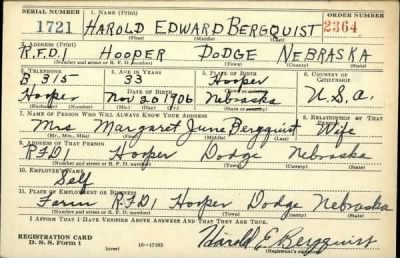 SERIAL NUMBER 1. NAME (Print) ORDER NUMBER
1721 HAROLD EDWARD BERGQUIST 2364
(First) (Middle) (Last)
2. ADDRESS (Print)
R.F.D.1 HOOPER DODGE NEBRASKA
(Number and street or R. F. D. number) (Town) (County) (State)
3. TELEPHONE 4. AGE IN YEARS 5. PLACE OF BIRTH 6. COUNTRY OF CITIZENSHIP
B 315 33 Hooper
DATE OF BIRTH
Hooper Nov 20 1906 Nebraska U.S.A.
(Exchange) (Number) (Mo.) (Day) (Yr.) (State or country)
7. NAME OF PERSON WHO WILL ALWAYS KNOW YOUR ADDRESS 8. RELATIONSHIP OF THAT PERSON
Mrs Margaret June Bergquist Wife
(Mr., Mrs., Miss) (First) (Middle) (Last)
9. ADDRESS OF THAT PERSON
RFD1 Hooper Dodge Nebraska
(Number and street or R. F. D. number) (Town) (County) (State)
10. EMPLOYER'S NAME
Self
11. PLACE OF EMPLOYMENT OR BUSINESS
Farm RFD1 Hooper Dodge Nebraska
(Number and street or R. F. D. number) (Town) (County) (State)
I AFFIRM THAT I HAVE VERIFIED ABOVE ANSWERS AND THAT THEY ARE TRUE.
REGISTRATION CARD
D. S. S. Form 1 (over) 16-17105 Harold E Bergquist
(Registrant's signature)